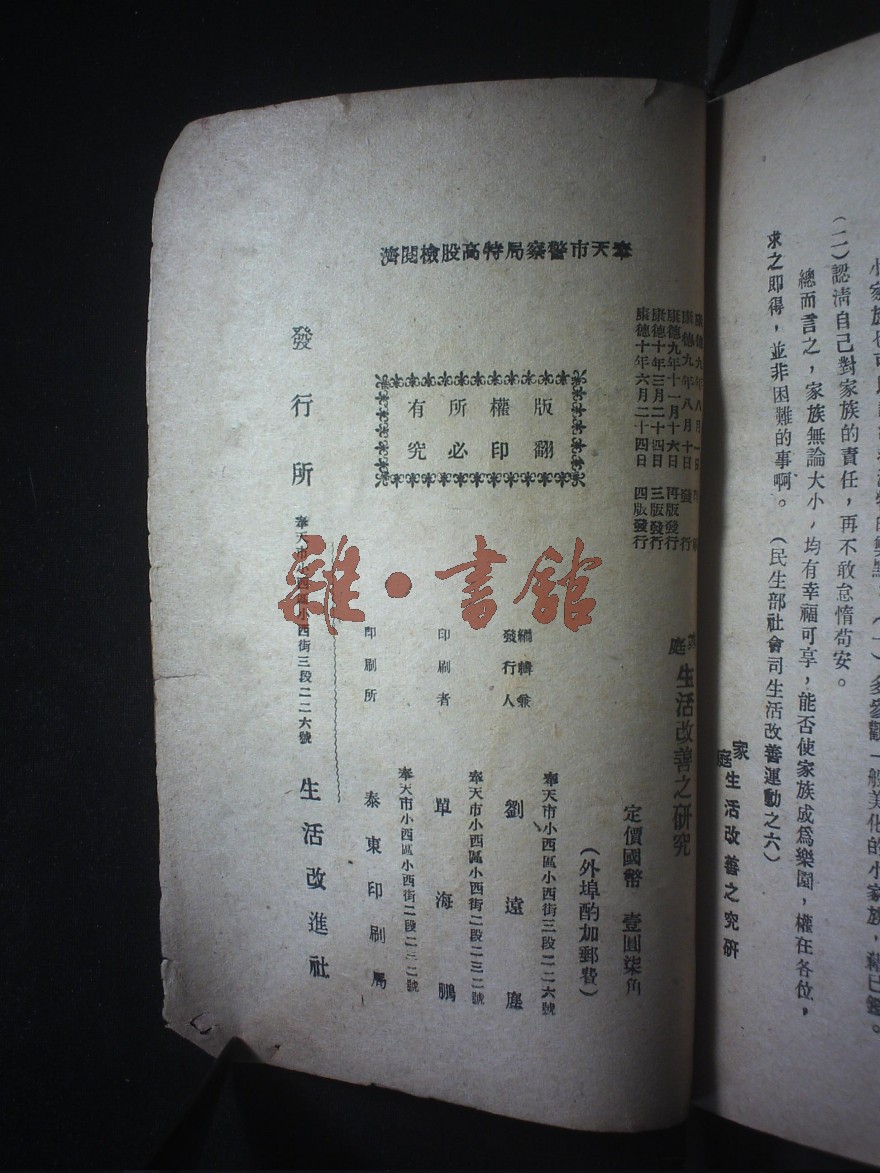 多參觀一般美化的小家族，
(二)認清自己對家族的責任，再不敢怠惰苟安。
總而言之，家族無論大小，均有幸福可享，能否使家族成爲樂園，權在各位，
求之即得，並非困難的事啊。 (民生部社會司生活改善運動之六)
家庭生活改善之究研
奉天市警察局特高股檢閱濟
康德九年八月
康德九年八月十日 發行
康德九年十一月十六日 再版發行
康德十年三月二十四日 三版發行
康德十年六月二十四日 四版發行
版權所有
翻印必究
庭生活改善之研究
定價國幣 壹圓柒角
(外埠酌加郵費)
奉天市小西區小西街三段二二六號
編輯兼發行人 劉遠塵
奉天市小西區小西街二段二三二號
印刷者 單海鵬
奉天市小西區小西街二段二三二號
印刷所 泰東印刷局
發行所 奉天市小西區小西街三段二二六號 生活改進社
雜·書館